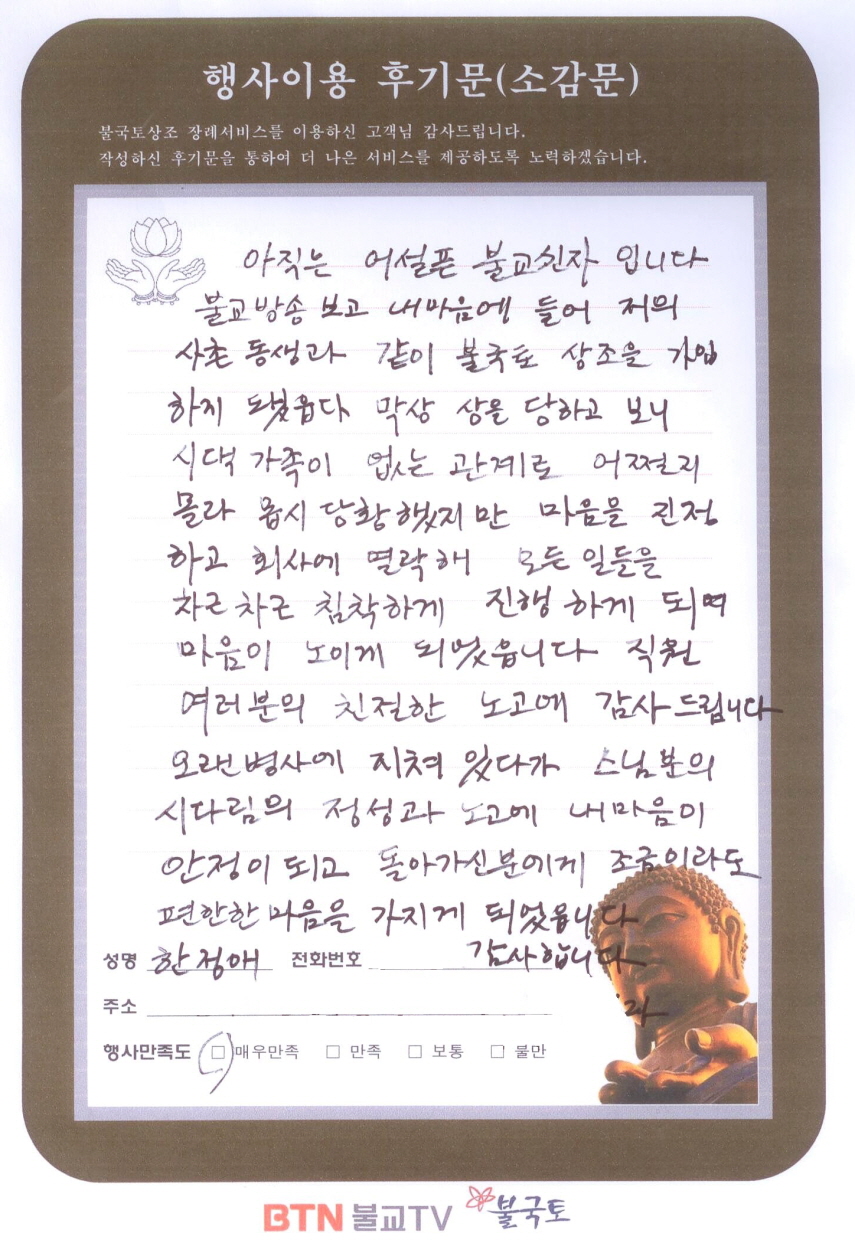 행사이용 후기문(소감문)
불국토상조 장례서비스를 이용하신 고객님 감사드립니다.
작성하신 후기문을 통하여 더 나은 서비스를 제공하도록 노력하겠습니다.
아직은 어설픈 불교신자 입니다
불교방송 보고 내마음에 들어 저의
사촌 동생과 같이 불국토 상조을 가입
하지 됐읍다 막상 상을 당하고 보니
시댁 가족이 없는 관계로 어쩔리
몰라 몹시 당황했지만 마음을 진정
하고 회사에 열락해 모든 일들을
차근차근 침착하게 진행 하게 되며
마음이 노이게 되었읍니다 직원
여러분의 친절한 노고에 감사드립니다
오랜병사에 지쳐 있다가 스님분의
시다림의 정성과 노고에 내마음이
안정이 되고 돌아가신분에게 조금이라도
편한한 마음을 가지게 되었읍니다
성명 한정애 전화번호 감사합니다
주소
행사만족도 □ 매우만족 □ 만족 □ 보통 □ 불만
BTN 불교TV 불국토